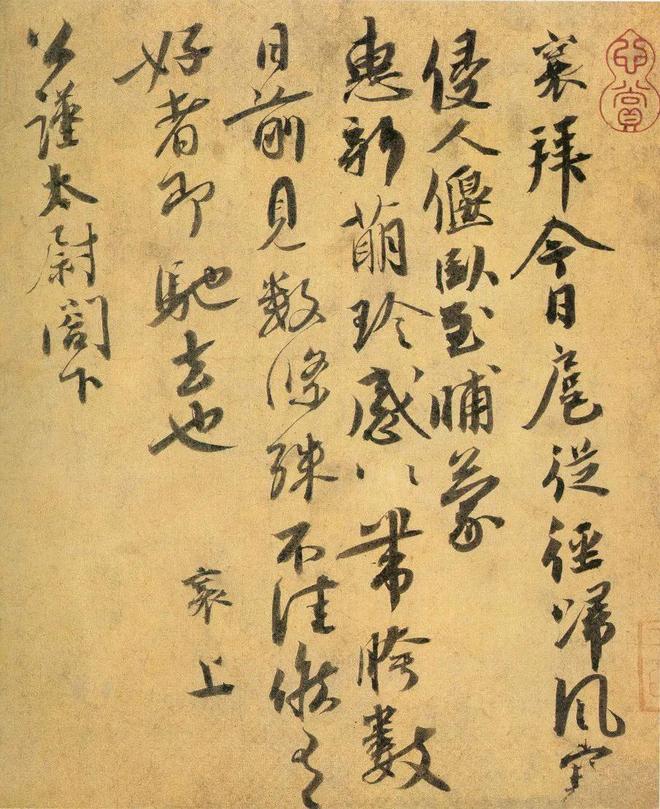 襄拜今日扈從徑歸風寒
侵人偃臥至晡蒙
惠新萌珍感帶胯數
日前見數條殊不佳候有
好者即馳去也
襄上
公謹太尉閤下